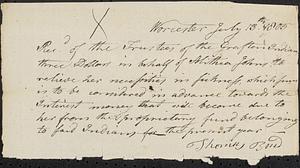 Worcester July 18th 1800
Rec'd of the Trustees of the Grafton Indians
three Dollars in behalf of Mithia Johns to
relieve her necessities in sickness which sum
is to be considered in advance towards the
Interest money that will become due to
her from the propriatory fund belonging
to said Indians the present year